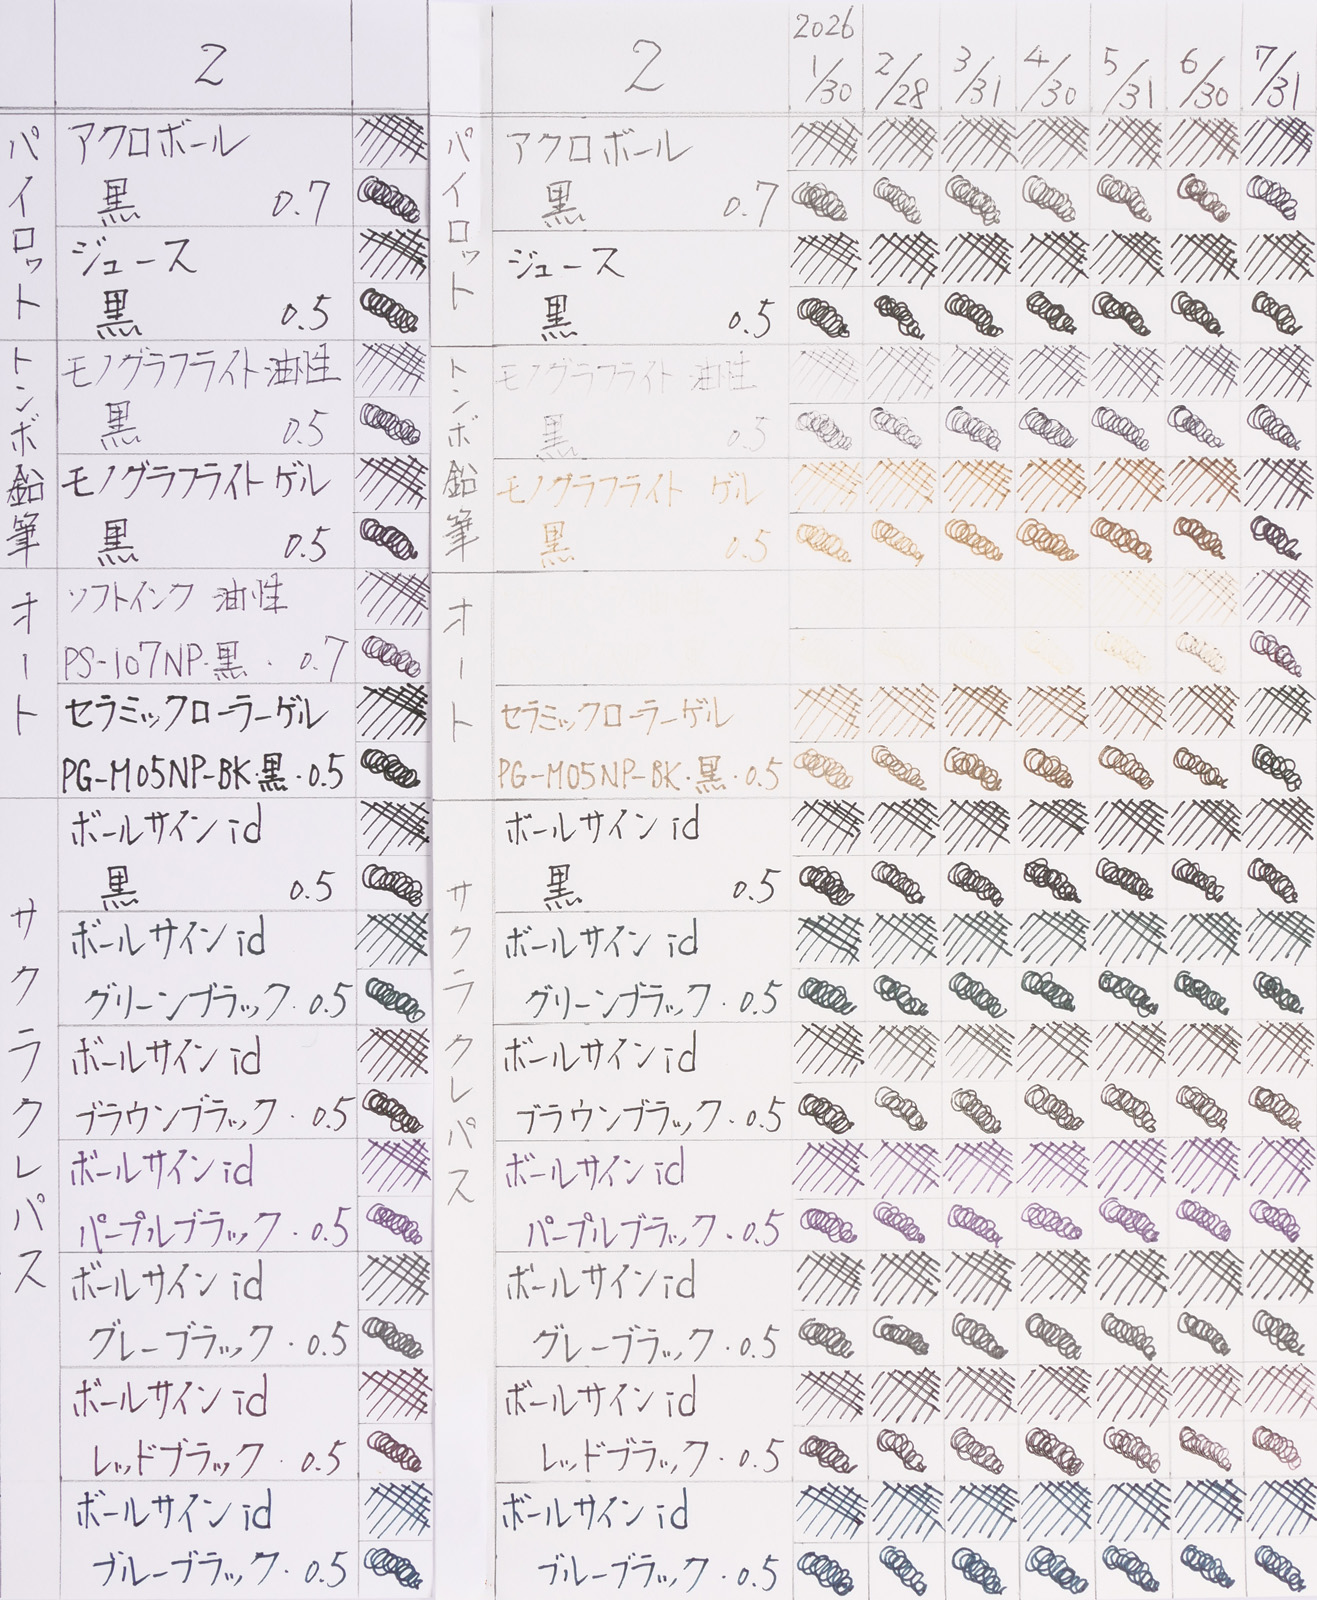 2
パイロット
アクロボール
黒 0.7
ジュース
黒 0.5
トンボ鉛筆
モノグラフライト 油性
黒 0.5
モノグラフライト ゲル
黒 0.5
オート
ソフトインク 油性
PS-107NP・黒・0.7
セラミックローラーゲル
PG-M05NP-BK・黒・0.5
サクラクレパス
ボールサイン id
黒 0.5
ボールサイン id
グリーンブラック・0.5
ボールサイン id
ブラウンブラック・0.5
ボールサイン id
パープルブラック・0.5
ボールサイン id
グレーブラック・0.5
ボールサイン id
レッドブラック・0.5
ボールサイン id
ブルーブラック・0.5
2
2026
1/30 2/28 3/31 4/30 5/31 6/30 7/31
パイロット
アクロボール
黒 0.7
ジュース
黒 0.5
トンボ鉛筆
モノグラフライト 油性
黒 0.5
モノグラフライト ゲル
黒 0.5
オート
セラミックローラーゲル
PG-M05NP-BK・黒・0.5
サクラクレパス
ボールサイン id
黒 0.5
ボールサイン id
グリーンブラック・0.5
ボールサイン id
ブラウンブラック・0.5
ボールサイン id
パープルブラック・0.5
ボールサイン id
グレーブラック・0.5
ボールサイン id
レッドブラック・0.5
ボールサイン id
ブルーブラック・0.5